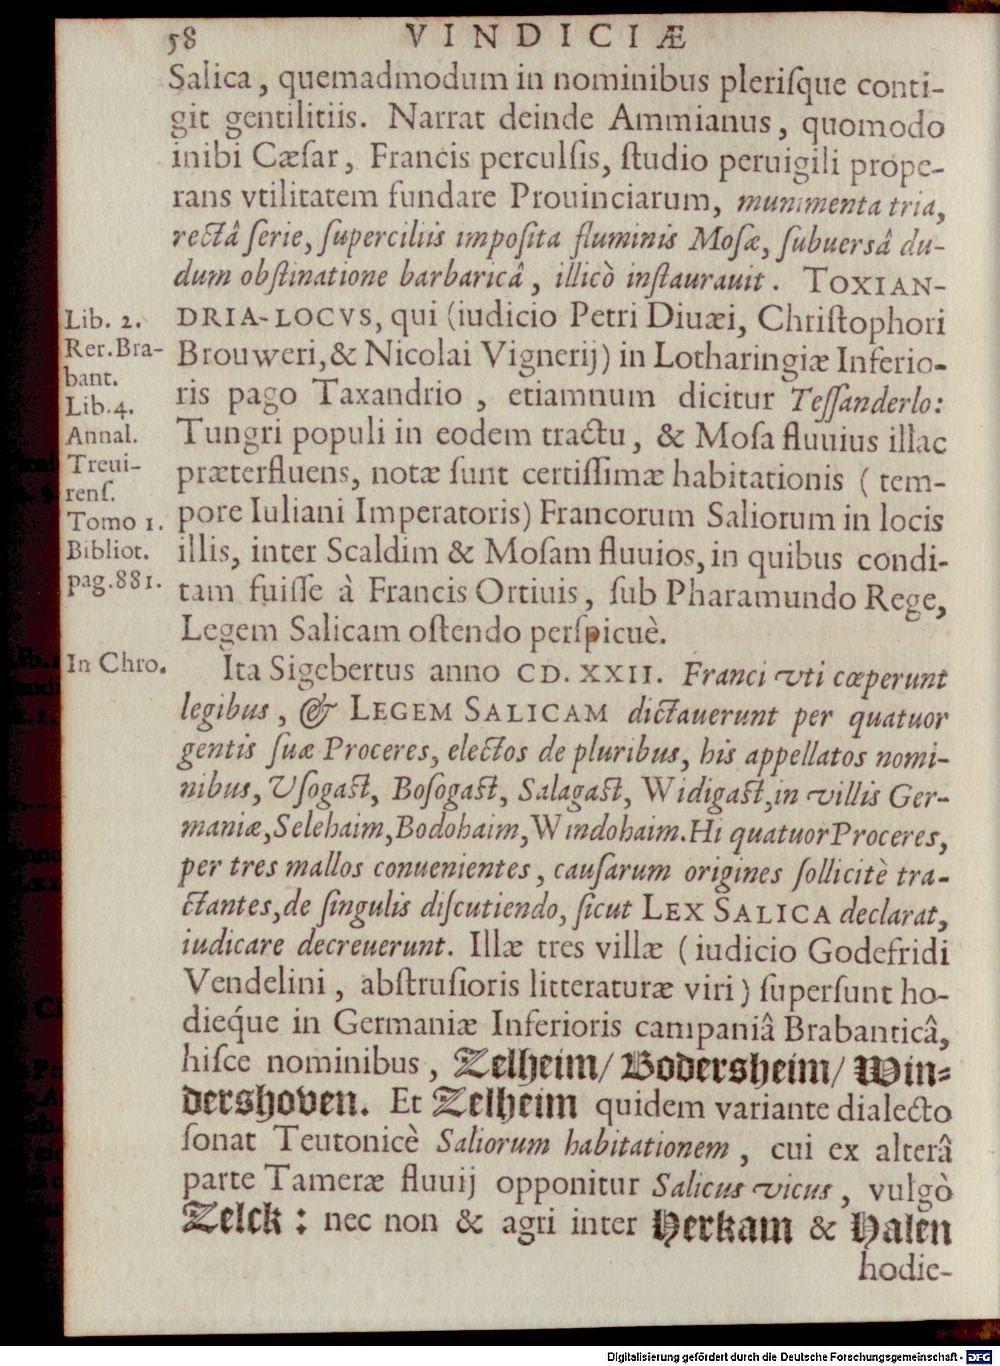 58 VINDICIÆ
Salica, quemadmodum in nominibus pleriſque conti-
git gentilitiis. Narrat deinde Ammianus, quomodo
inibi Cæſar, Francis perculſis, ſtudio peruigili prope-
rans vtilitatem fundare Prouinciarum, munimenta tria,
rectâ ſerie, ſuperciliis impoſita fluminis Moſæ, ſubuersâ du-
dum obſtinatione barbaricâ, illicò inſtaurauit. TOXIAN-
DRIA-LOCVS, qui (iudicio Petri Diuæi, Chriſtophori
Brouweri, & Nicolai Vignerij) in Lotharingiæ Inferio-
ris pago Taxandrio, etiamnum dicitur Teſſanderlo:
Tungri populi in eodem tractu, & Moſa fluuius illac
præterfluens, notæ ſunt certiſſimæ habitationis (tem-
pore Iuliani Imperatoris) Francorum Saliorum in locis
illis, inter Scaldim & Moſam fluuios, in quibus condi-
tam fuiſſe à Francis Ortiuis, ſub Pharamundo Rege,
Legem Salicam oſtendo perſpicuè.
Lib. 2.
Rer.Bra-
bant.
Lib.4.
Annal.
Treui-
renſ.
Tomo 1.
Bibliot.
pag.881.
In Chro.
Ita Sigebertus anno CD. XXII. Franci vti cœperunt
legibus, & LEGEM SALICAM dictauerunt per quatuor
gentis ſuæ Proceres, electos de pluribus, his appellatos nomi-
nibus, Vſogaſt, Boſogaſt, Salagaſt, Widigaſt, in villis Ger-
maniæ, Selehaim, Bodohaim, Windohaim. Hi quatuor Proceres,
per tres mallos conuenientes, cauſarum origines ſollicitè tra-
ctantes, de ſingulis diſcutiendo, ſicut LEX SALICA declarat,
iudicare decreuerunt. Illæ tres villæ (iudicio Godefridi
Vendelini, abſtruſioris litteraturæ viri) ſuperſunt ho-
dieq́ue in Germaniæ Inferioris campaniâ Brabanticâ,
hiſce nominibus, Zelheim/ Bodersheim/ Win-
dershoven. Et Zelheim quidem variante dialecto
ſonat Teutonicè Saliorum habitationem, cui ex alterâ
parte Tameræ fluuij opponitur Salicus vicus, vulgò
Zelck: nec non & agri inter Herkam & Halen
hodie-
Digitalisierung gefördert durch die Deutsche Forschungsgemeinschaft - DFG